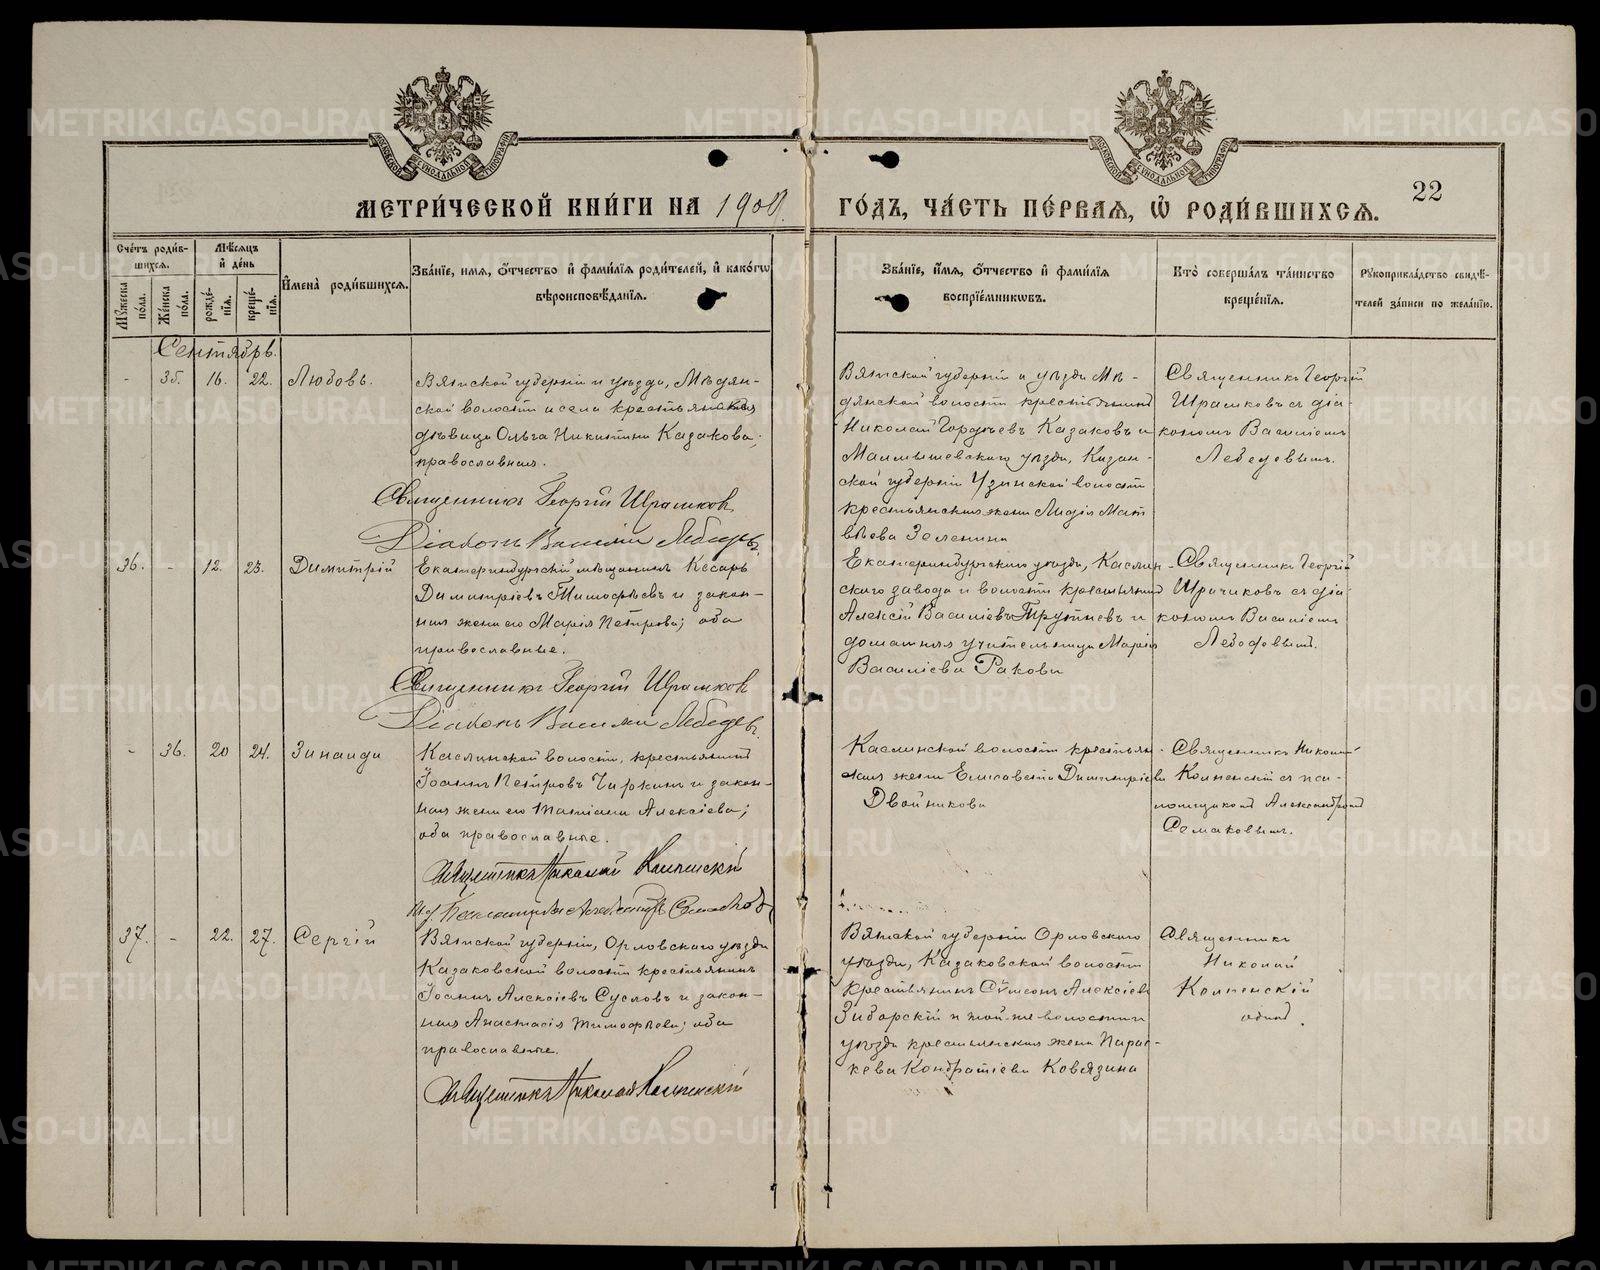 МЕТРИ́ЧЕСКОЙ КНИ́ГИ НА 1908. ГО́ДЪ, ЧА́СТЬ ПЕ́РВАѦ, Ѡ РОДИ́ВШИХСѦ.
22
Сче́тъ роди́в-
шихсѧ.
Мꙋ́жеска по́ла.
Же́нска по́ла.
Мѣ́сѧцъ и де́нь
рожде́нїѧ.
креще́нїѧ.
И҆мена̀ роди́вшихсѧ.
Зва́нїе, и́мѧ, ѻ҆́тчество и҆ фами́лїѧ роди́телей, и҆ како́гѡ
вѣроисповѣ́данїѧ.
Зва́нїе, и́мѧ, ѻ҆́тчество и҆ фами́лїѧ
воспрїе́мникѡвъ.
Кто̀ соверша́лъ та́инство
креще́нїѧ.
Рꙋкоприкла́дство свидѣ́-
телей за́писи по жела́нїю.
Сентябрь.
- 35. 16. 22. Любовь.
Вятской губерніи и уѣзда, Мѣдян-
ской волости и села крестьянская
дѣвица Ольга Никитина Казакова,
православная.
Священникъ Георгій
Діаконъ Василій Лебедевъ.
Вятской губерніи и уѣзда Мѣ-
дянской волости крестьянинъ
Николай Гордѣевъ Казаковъ и
Малмышевскаго уѣзда, Казан-
ской губерніи Узинской волости
крестьянская жена Лидія Мат
вѣева Зеленина
Священникъ Георгій
съ діа-
кономъ Василіемъ
Лебедевымъ.
36. - 12. 23. Димитрій
Екатеринбургскій мѣщанинъ Кесарь
Димитріевъ Тимофѣевъ и закон-
ная жена его Марія Петрова; оба
православные.
Священникъ Георгій
Діаконъ Василій Лебедевъ.
Екатеринбургскаго уѣзда, Каслин-
скаго завода и волости крестьянинъ
Алексій Василіевъ и
домашняя учительница Марія
Василіева Ракова
Священникъ Георгій
съ діа-
кономъ Василіемъ
Лебедевымъ.
- 36. 20 24. Зинаида
Каслинской волости, крестьянинъ
Іоаннъ Петровъ Чиркинъ и закон-
ная жена его Татіана Алексіева;
оба православные.
Священникъ Николай
Псаломщикъ Александръ
Каслинской волости крестьян-
ская жена Елисавета Димитріева
Двойникова
Священникъ Николай
съ пса-
ломщикомъ Александромъ
Семаковымъ.
37. - 22. 27. Сергій
Вятской губерніи, Орловскаго уѣзда
Казаковской волости крестьянинъ
Іоаннъ Алексіевъ Сусловъ и закон-
ная Анастасія Тимофѣева; оба
православные.
Священникъ Николай
Вятской губерніи Орловскаго
уѣзда, Казаковской волости
крестьянинъ Сѵмеонъ Алексіевъ
Зиборскій и той-же волости и
уѣзда крестьянская жена Парас-
кева Кондратіева Ковязина
Священникъ
Николай
одинъ.
METRIKI.GASO-URAL.RU